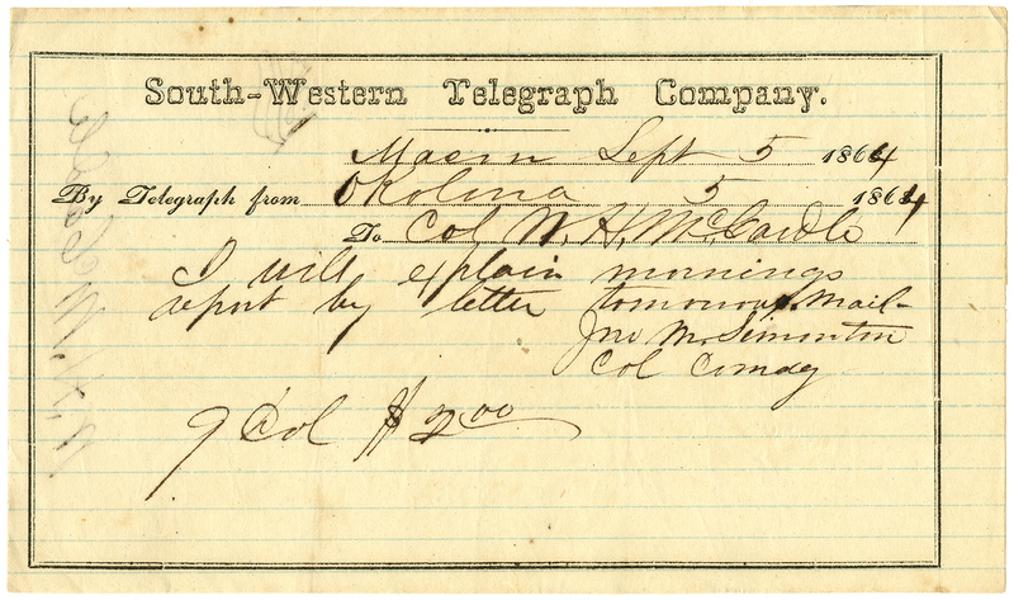 South-Western Telegraph Company.
Macon Sept 5 1864
By Telegraph from Okolona 5 1864
To Col W. H. McCardle
I will explain mornings
report by letter tomorrows mail-
Jno M. Simonton
Col Comdg
9 Col $2.00